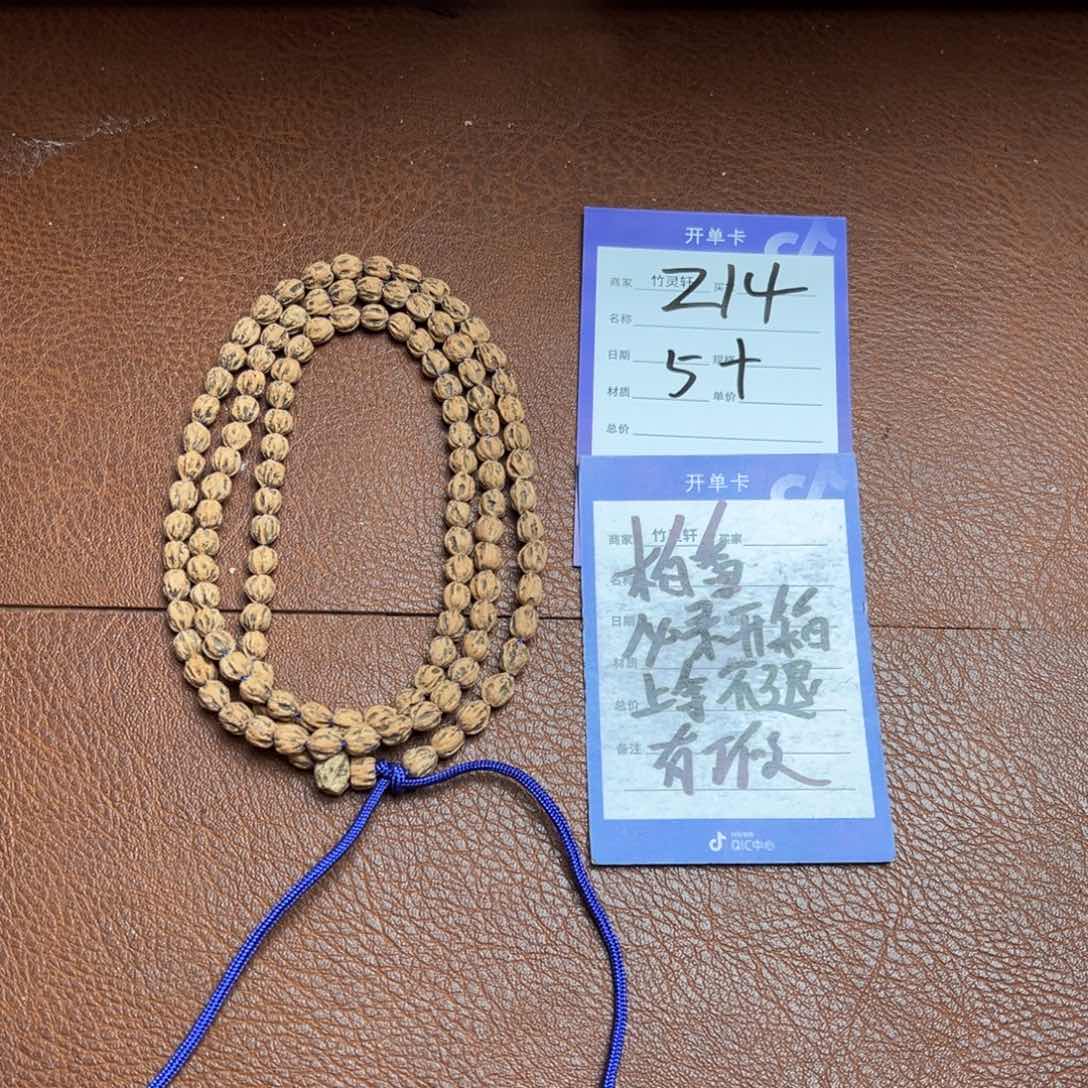 开单卡
商家 竹灵轩 买
Z14
名称
日期 5+ 规格
材质 单价
总价
开单卡
商家 竹灵轩 买家
柏多
名称
必录开箱
日期
材质
上手不退
总价
有瑕
备注
抖音电商
QIC中心